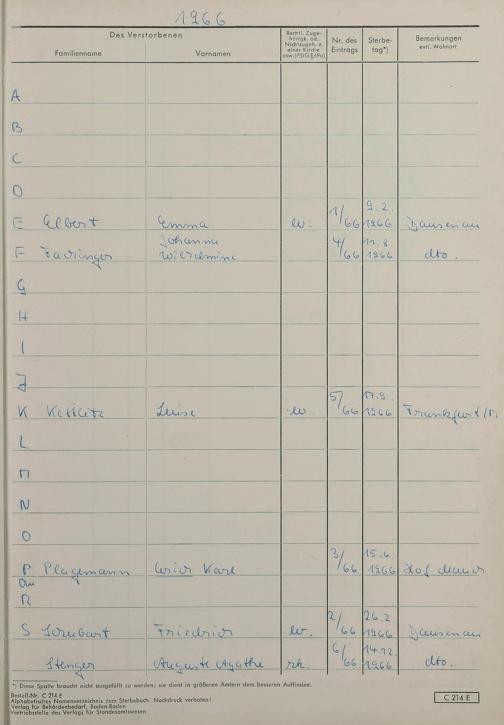 1966
Des Verstorbenen
Familienname Vornamen
Rechtl. Zuge-
hörigk. od.
Nichtzugeh. z.
einer Kirche
usw. (PStG § 69a)
Nr. des
Eintrags
Sterbe-
tag*)
Bemerkungen
evtl. Wohnort
A
B
C
D
E Elbert Emma ev. 1/66 9.2.1966 Dausenau
F Johanna Wilhelmine 4/66 1966 dto.
G
H
I
J
K Luise ev. 5/66 17.9.1966 Frankfurt/M.
L
M
N
O
P Plagemann Erich Karl 3/66 15.6.1966 Hof
Qu
R
S Schubart Friedrich ev. 2/66 26.2.1966 Dausenau
Stenger Auguste Agathe rk. 6/66 14.12.1966 dto.
*) Diese Spalte braucht nicht ausgefüllt zu werden; sie dient in größeren Ämtern dem besseren Auffinden.
Bestell-Nr. C 214 E
Alphabetisches Namenverzeichnis zum Sterbebuch. Nachdruck verboten!
Verlag für Behördenbedarf, Baden-Baden
Vertriebsstelle des Verlags für Standesamtswesen
C 214 E